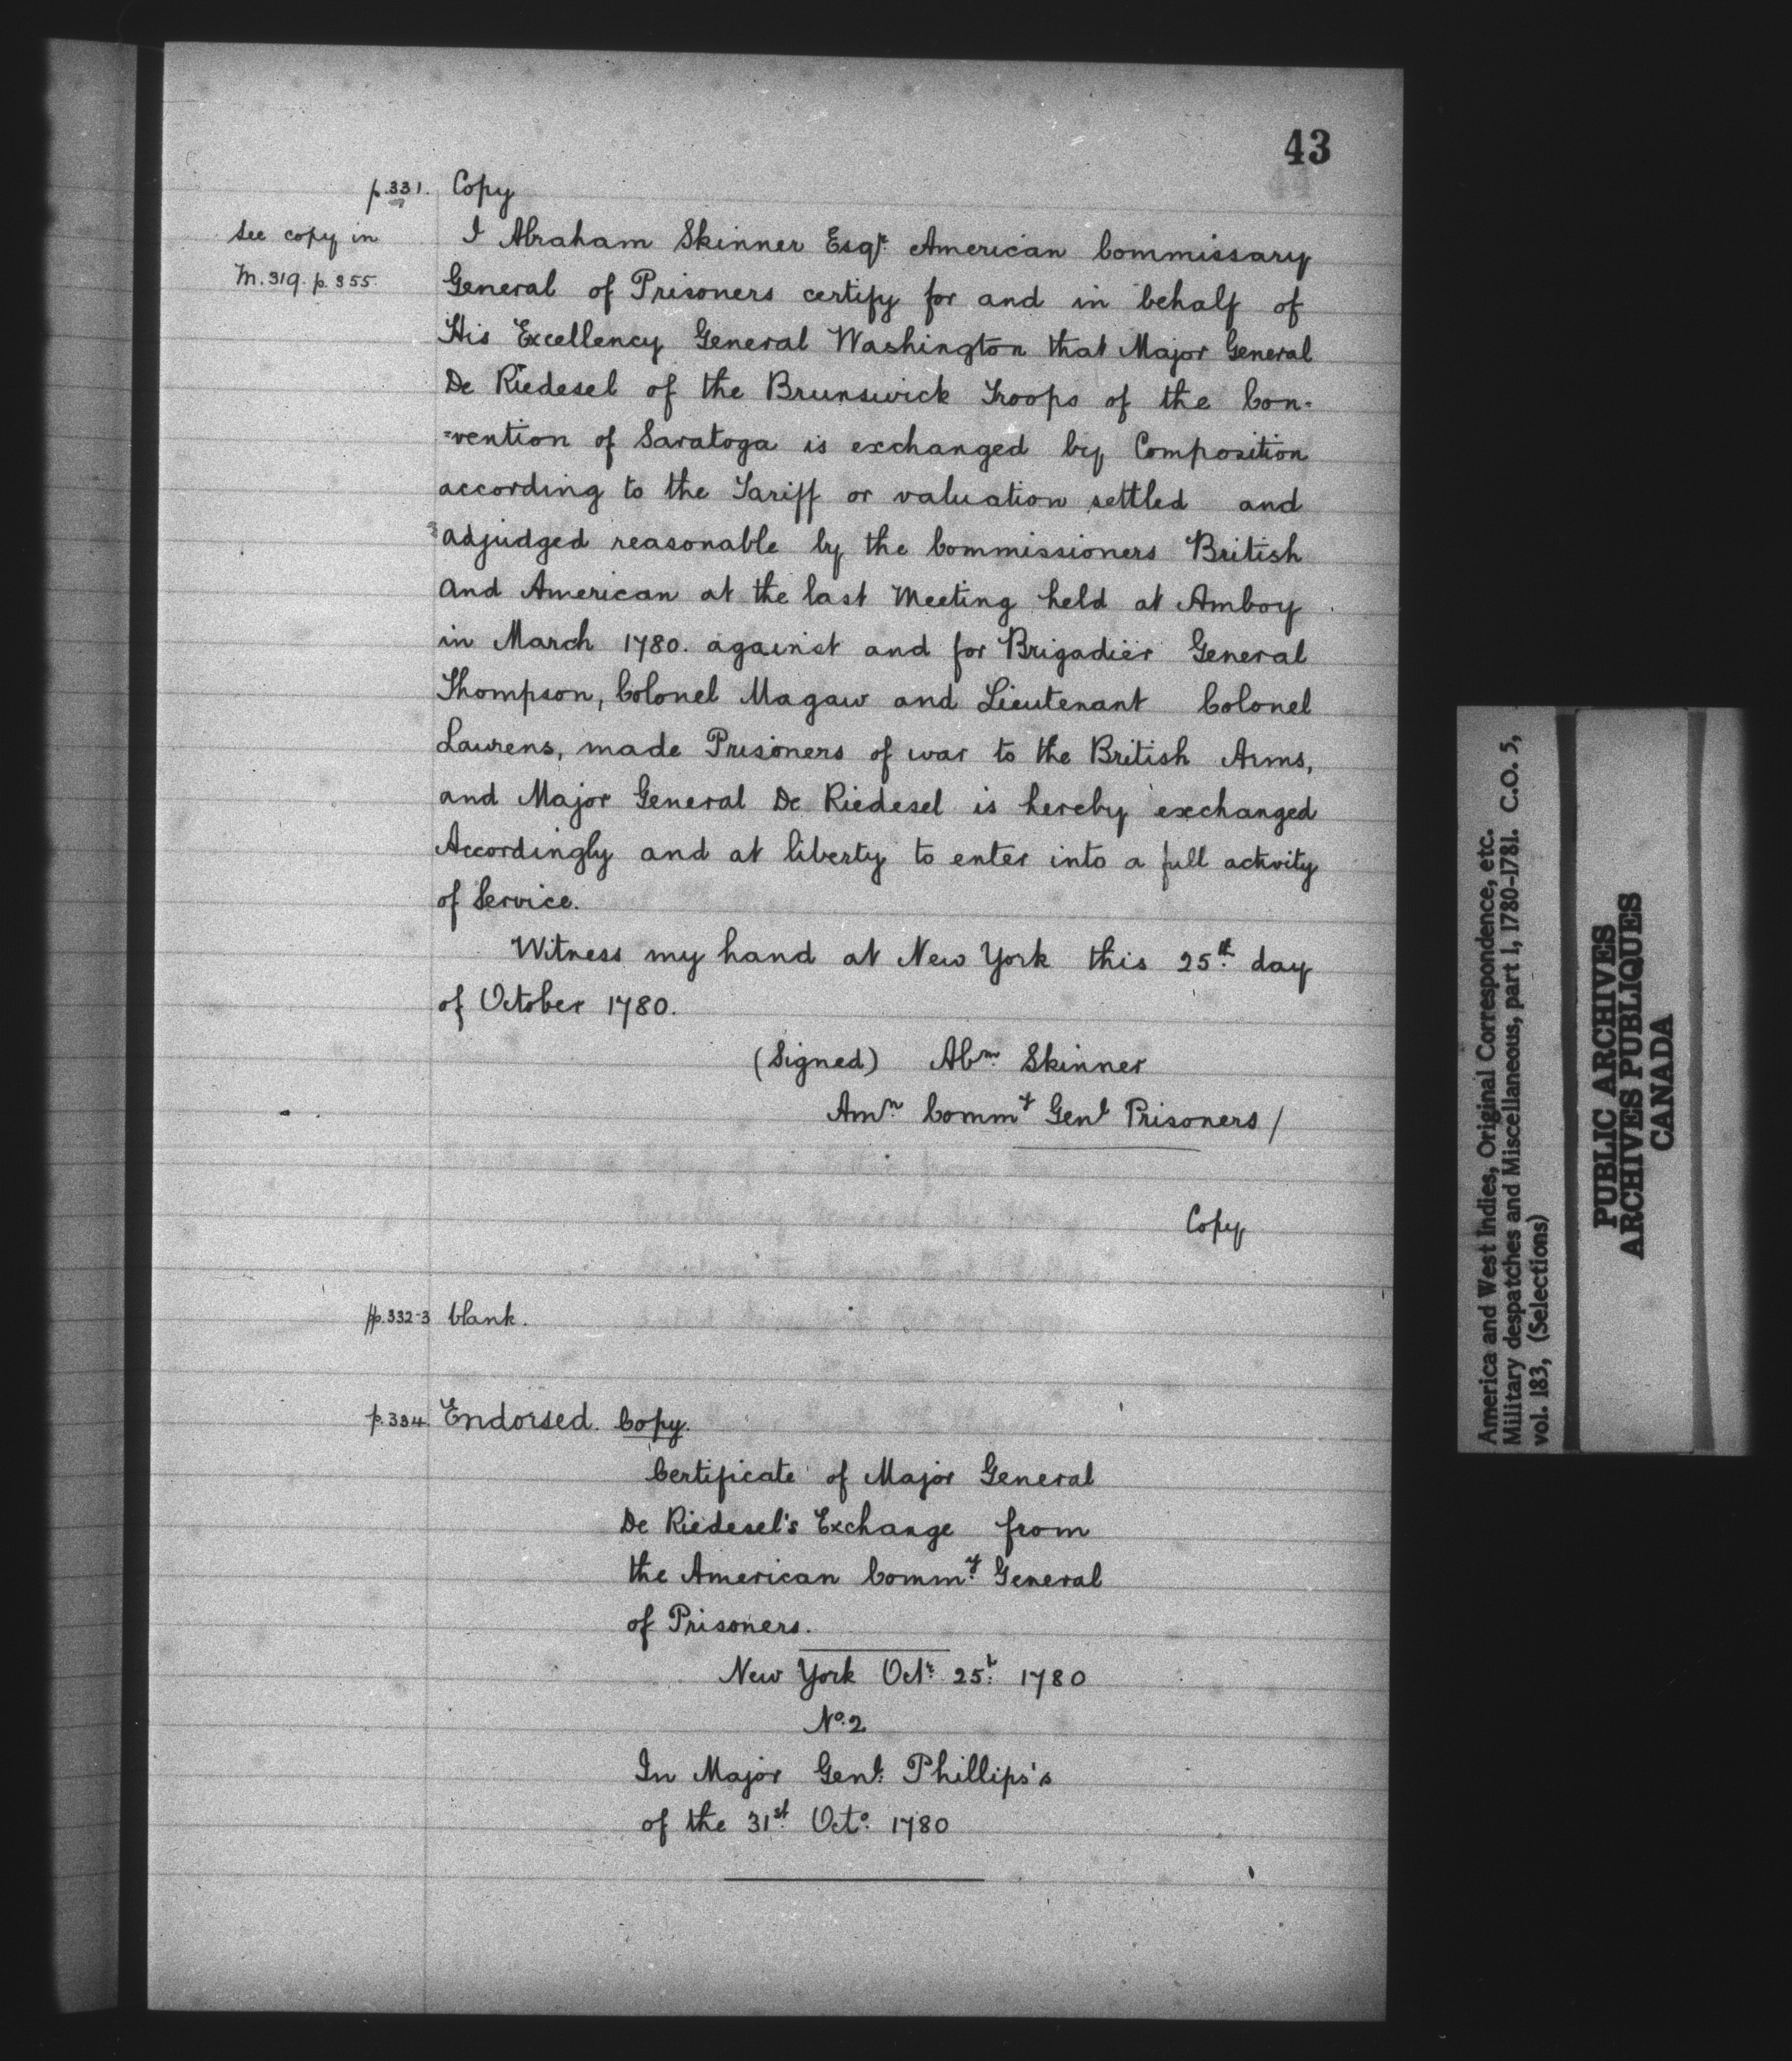 43
p.331. Copy
see copy in
M.319. p.355.
I Abraham Skinner Esqr. American Commissary
General of Prisoners certify for and in behalf of
His Excellency General Washington that Major General
De Riedesel of the Brunswick Troops of the Con-
=vention of Saratoga is exchanged by Composition
according to the Tariff or valuation settled and
adjudged reasonable by the Commissioners British
and American at the last Meeting held at Amboy
in March 1780. against and for Brigadier General
Thompson, Colonel Magaw and Lieutenant Colonel
Laurens, made Prisoners of war to the British Arms,
and Major General De Riedesel is hereby exchanged
Accordingly and at liberty to enter into a full activity
of Service.
Witness my hand at New York this 25th. day
of October 1780.
(Signed) Abm. Skinner
Amn. Commy. Genl Prisoners/
Copy
pp.332-3 blank.
p.334. Endorsed. Copy.
Certificate of Major General
De Riedesel's Exchange from
the American Commy. General
of Prisoners.
New York Octr. 25t. 1780
No.2
In Major Genl. Phillips's
of the 31st. Octo. 1780
America and West Indies, Original Correspondence, etc.
Military despatches and Miscellaneous, part 1, 1780-1781. C.O. 5,
vol. 183, (Selections)
PUBLIC ARCHIVES
ARCHIVES PUBLIQUES
CANADA